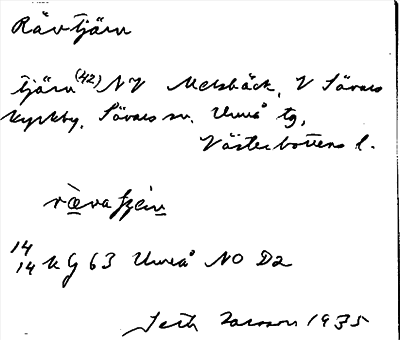 Rävtjärn
tjärn (42) NV Metsbäck, V Sävars
kyrkby, Sävars sn. Umeå tg,
Västerbottens l.
14/14 K G 63 Umeå NO D2
Seth Larsson 1935